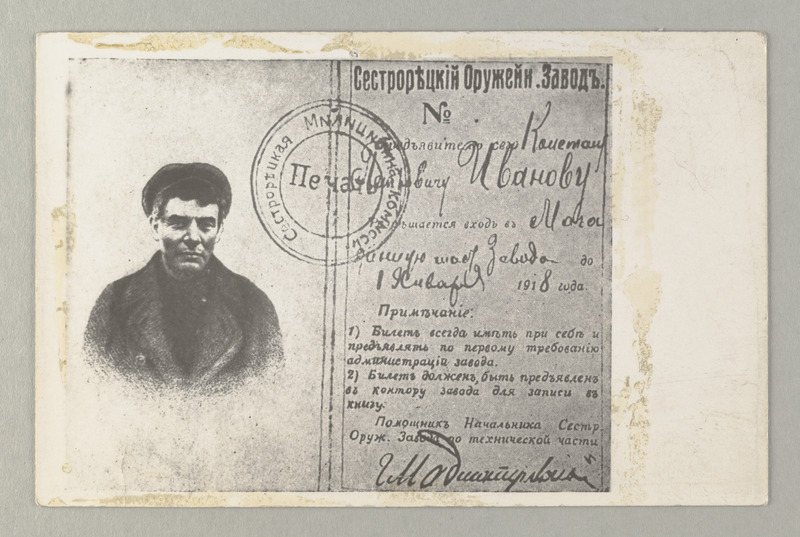 Сестрорѣцкій Оружейн. Заводъ.
№
Предъявителю сего Констант
Ивановичу Иванову
Разрѣшается входъ въ Мага
зинную Завода до
1 Января 1918 года.
Примѣчаніе:
1) Билетъ всегда имѣть при себѣ и
предъявлять по первому требованію
администраціи завода.
2) Билетъ долженъ быть предъявленъ
въ контору завода для записи въ
книгу.
Помощникъ Начальника Сестр.
Оруж. Завода по технической части
Сестрорѣцкая комиссія
Печать